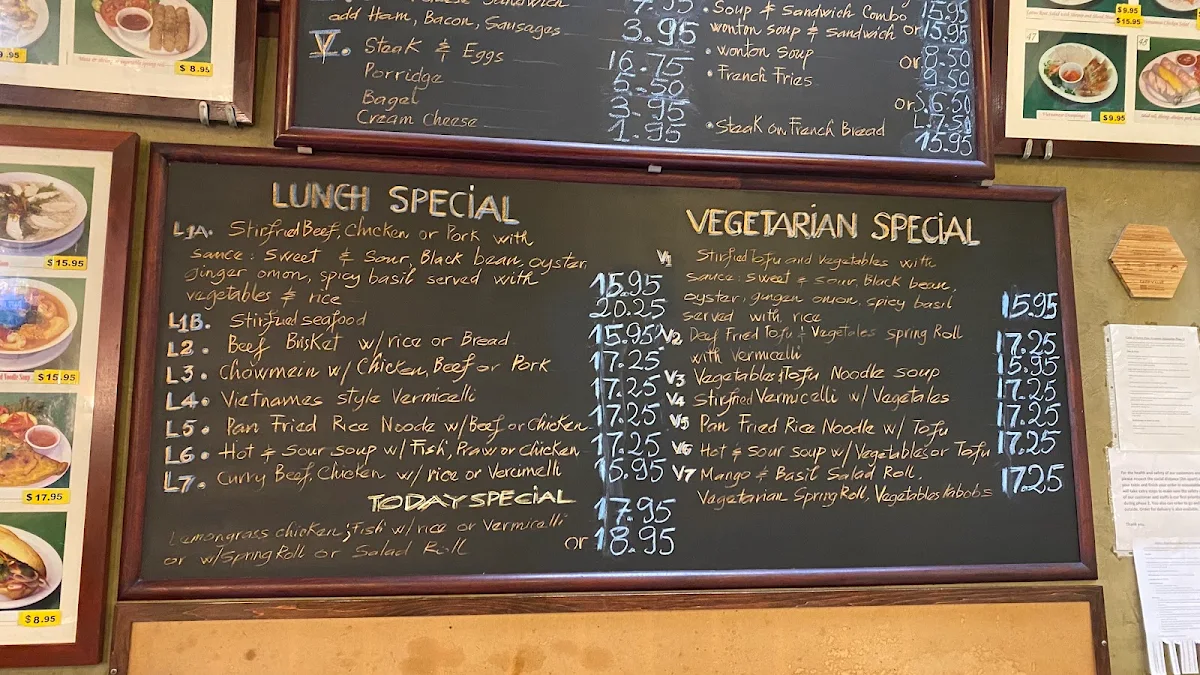 $8.95
add Ham, Bacon, Sausages 3.95
V. Steak & Eggs 16.75
Porridge 5.50
Bagel 3.95
Cream Cheese 1.95
• Soup & Sandwich Combo 15.95
wonton soup & sandwich or 15.95
• wonton soup or 8.50
• French Fries
or S. 6.50
L. 7.50
• Steak on French Bread 15.95
$9.95
$15.95
47
48
$9.95
LUNCH SPECiAL
L1A. Stirfried Beef, Chicken or Pork with
sauce: sweet & Sour, Black bean, oyster,
ginger onion, spicy basil served with
vegetables & rice 15.95
L1B. Stirfried seafood 20.25
L2. Beef Brisket w/rice or Bread 15.95
L3. Chowmein w/ Chicken, Beef or Pork 17.25
L4. Vietnames style Vermicelli 17.25
L5. Pan Fried Rice Noodle w/Beef or Chicken 17.25
L6. Hot & Sour soup w/ Fish, Prawn or chicken 17.25
L7. Curry Beef, Chicken w/rice or Vercimelli 15.95
TODAY SPECIAL
Lemongrass chicken, Fish w/rice or Vermicelli 17.95
or w/Spring Roll or Salad Roll or 18.95
VEGETARiAN SPECiAL
V1 Stirfried Tofu and Vegetables with
sauce: sweet & sour, Black bean,
oyster, ginger onion, spicy basil
served with rice 15.95
V2 Deef Fried Tofu & Vegetales spring Roll
with Vermicelli 17.25
V3 Vegetables & Tofu Noodle soup 15.95
V4 Stirfried Vermicelli w/ Vegetales 17.25
V5 Pan Fried Rice Noodle w/ Tofu 17.25
V6 Hot & Sour soup w/Vegetables or Tofu 17.25
V7 Mango & Basil Salad Roll, 17.25
Vegetarian Spring Roll, Vegetables Kabobs
$15.95
$15.95
$17.95
$8.95
Thank you